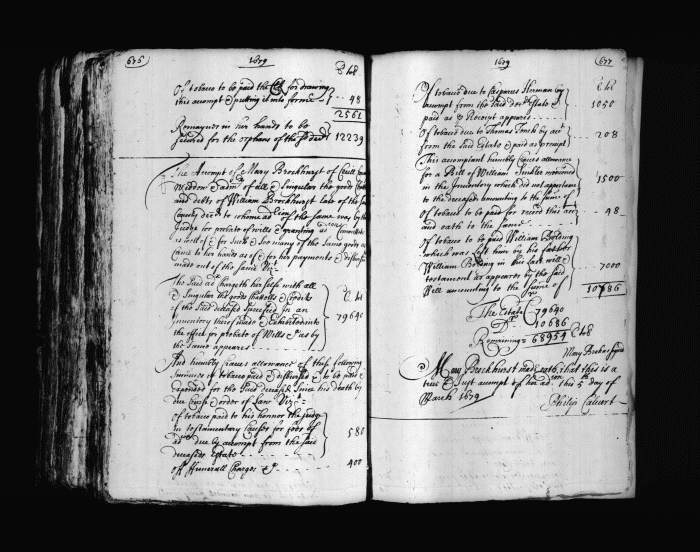 676
1679
lb
of tobacco to be paid the for drawing
this accompt & putting it into forme - 48
2561
Remaynes in her hands to be
secured for the orphans of the sd decd 12239
The Accompt of Mary Brockhurst of Cecill
Widdow & admx of all & singular the goods
and debts of William Brockhurst late of the
County decd to whom adcon of the same was by the
Judge for probate of wills & granting
is well of & for such & soo many of the same goods as
came to her hands as of & for her payments & disburse
made out of the same Vizt
The said adx Chargeth her selfe with all
& singular the goods Chattells & Credits
of the said deceased specified in an
Inventory thereof made & Exhibited into
the office for probate of Wills & as by
the same appeares
lb
79640
And humbly Craves allowance of these following
summes of tobacco paid & disbursed & to be paid &
expended for the said deceased since his death by
due Course & order of Law Vizt
of tobacco paid to his honnor the Judge
in testamentary Causes for fees of
due by accompt from the said
deceaseds Estate - 580
of funerall Charges &c - 400
1679
677
lb
Of tobacco due to Casparus Herman by
accompt from the said decds Estate &
paid as & Receipt appeares - 1050
of tobacco due to Thomas Smith by acct
from the said Estate & paid as accompt - 208
This accomptant humbly Craves allowance
for a Bill of William menconed
in the Inventory which did not appertaine
to the deceased amounting to the summe of - 1500
of tobacco to be paid for record this acct
and oath to the same - 48
of tobacco to be paid William Boland
which was left him by his father
William Boland in his last will &
testament as appeares by the said
Will amounting to the summe of - 7000
10786
The Estate 79640
10686
Remaining 68954 lb
Mary Brockhurst made oath that this is a
true & Just accompt of her adcon this 5 day of
March 1679
Philip Calvert